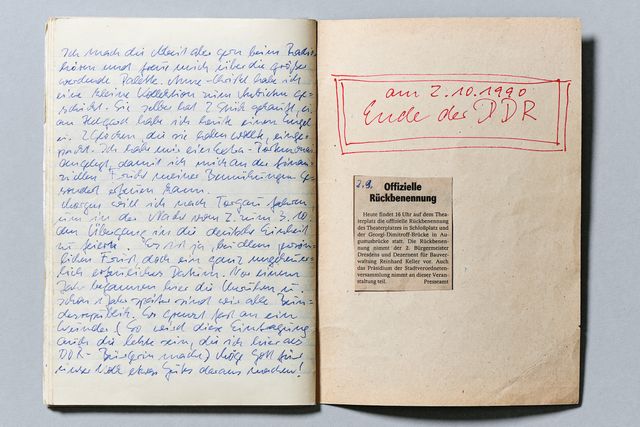 Ich mach die Arbeit aber gern beim Radio-
hören und freue mich über die größer
werdende Palette. Anne-Christel habe ich
eine kleine Kollektion zum ge-
schickt. Sie selber hat 2 Stück gekauft,
an habe ich heute einen Engel
u. 2 Glocken, die sie haben wollte, einge-
packt. Ich habe mir ein Extra-Portmonee
angelegt, damit ich mich an der finan-
ziellen Frucht meiner Bemühungen ge-
sondert erfreuen kann.
Morgen will ich nach Torgau fahren
um in der Nacht vom 2. zum 3.10.
den Übergang in die deutsche Einheit
zu feiern. Es ist ja, bei allem persön-
lichen Frust, doch ein ganz ungeheuer-
lich erfreuliches Datum. Vor einem
Jahr begannen hier die Unruhen u.
schon 1 Jahr später sind wir alle Bun-
desrepublik. Es grenzt fast an ein
Wunder! (So wird diese Eintragung
auch die letzte sein, die ich hier als
DDR-Bürgerin mache) Möge Gott für
unser Volk etwas Gutes daraus machen!
am 2.10.1990
Ende der DDR
2.9.
Offizielle
Rückbenennung
Heute findet 16 Uhr auf dem Thea-
terplatz die offizielle Rückbenennung
des Theaterplatzes in Schloßplatz und
der Georgi-Dimitroff-Brücke in Au-
gustusbrücke statt. Die Rückbenen-
nung nimmt der 2. Bürgermeister
Dresdens und Dezernent für Bauver-
waltung Reinhard Keller vor. Auch
das Präsidium der Stadtverordneten-
versammlung nimmt an dieser Veran-
staltung teil. Presseamt